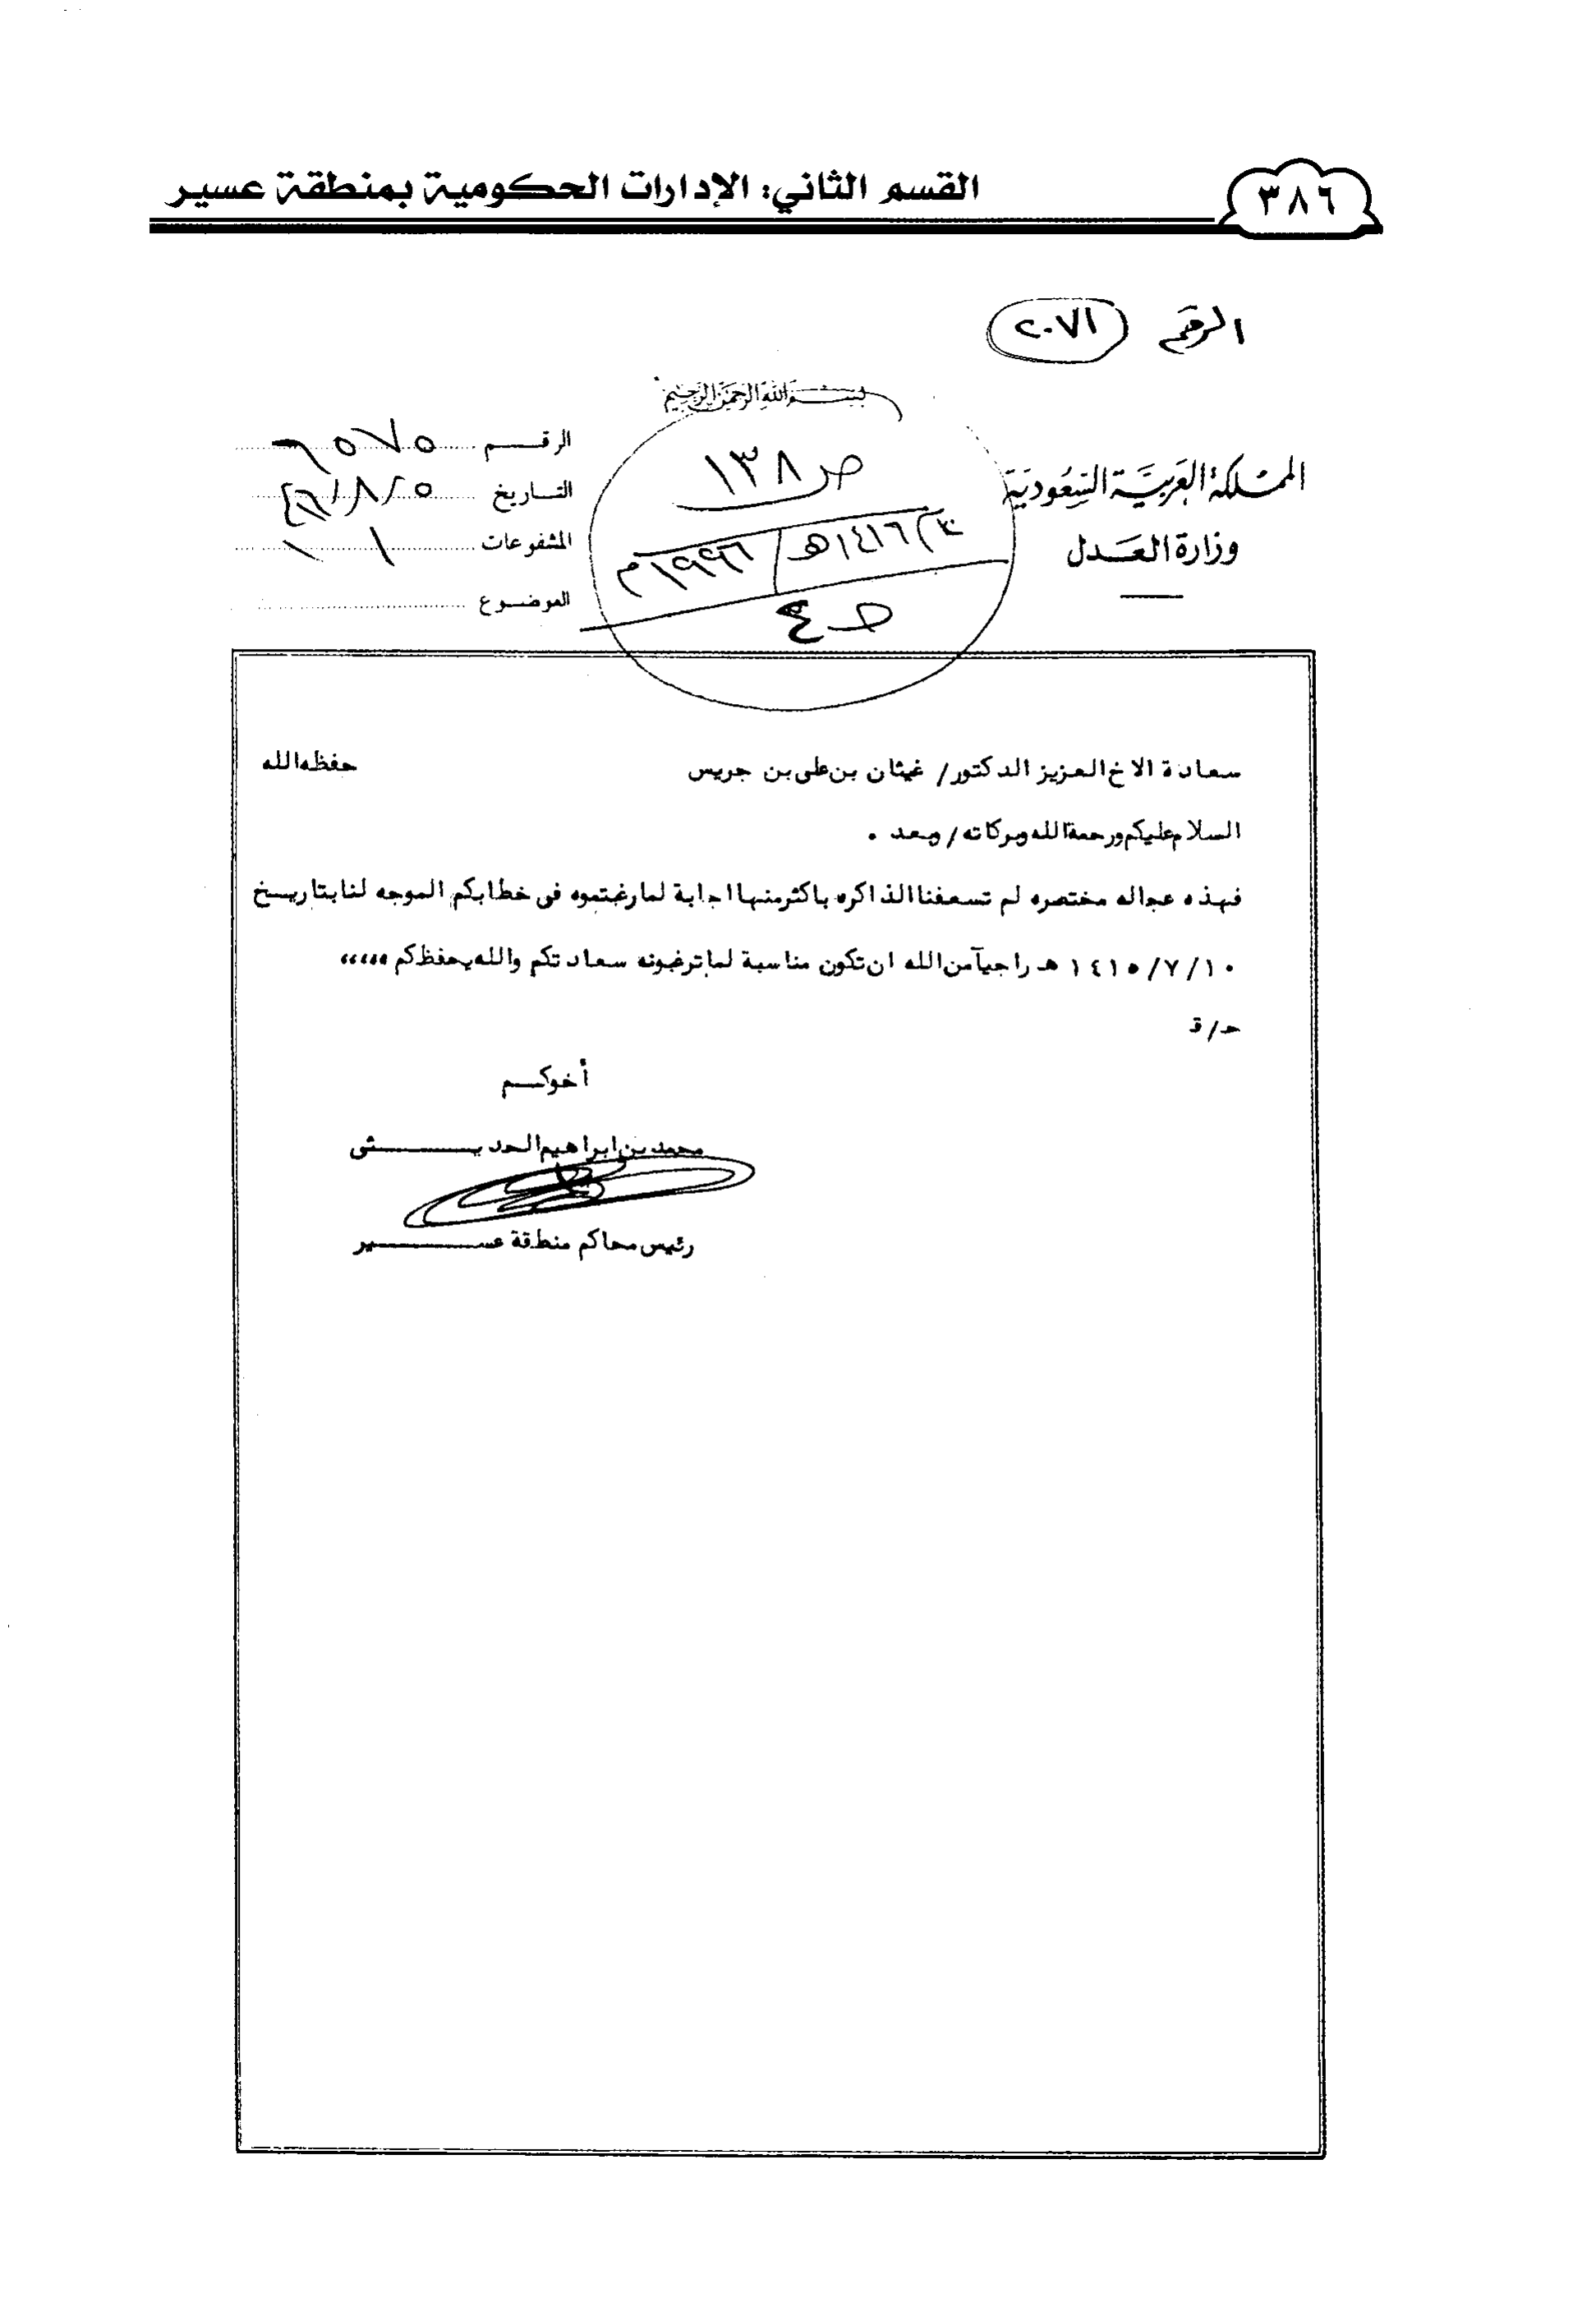 القسم الثاني: الإدارات الحكومية بمنطقة عسير
٣٨٦
الرقم ٢٠٧١
بسم الله الرحمن الرحيم
المملكة العربية السعودية
وزارة العدل
ص ١٣٨
١٤١٦هـ / ١٩٩٦م
الرقم ٦٥٧٥
التاريخ
المشفوعات
الموضوع
سعادة الاخ العزيز الدكتور/ غيثان بن على بن جريس حفظه الله
السلام عليكم ورحمة الله وبركاته/ وبعد .
فهذه عجاله مختصره لم تسعفنا الذاكره باكثر منها اجابة لما رغبتموه فى خطابكم الموجه لنا بتاريخ
١٤١٥/٧/١٠ هـ راجياً من الله ان تكون مناسبة لما ترغبونه سعادتكم والله يحفظكم ،،،،،
حـ/ق
أخوكم
محمد بن ابراهيم الحديثى
رئيس محاكم منطقة عسير